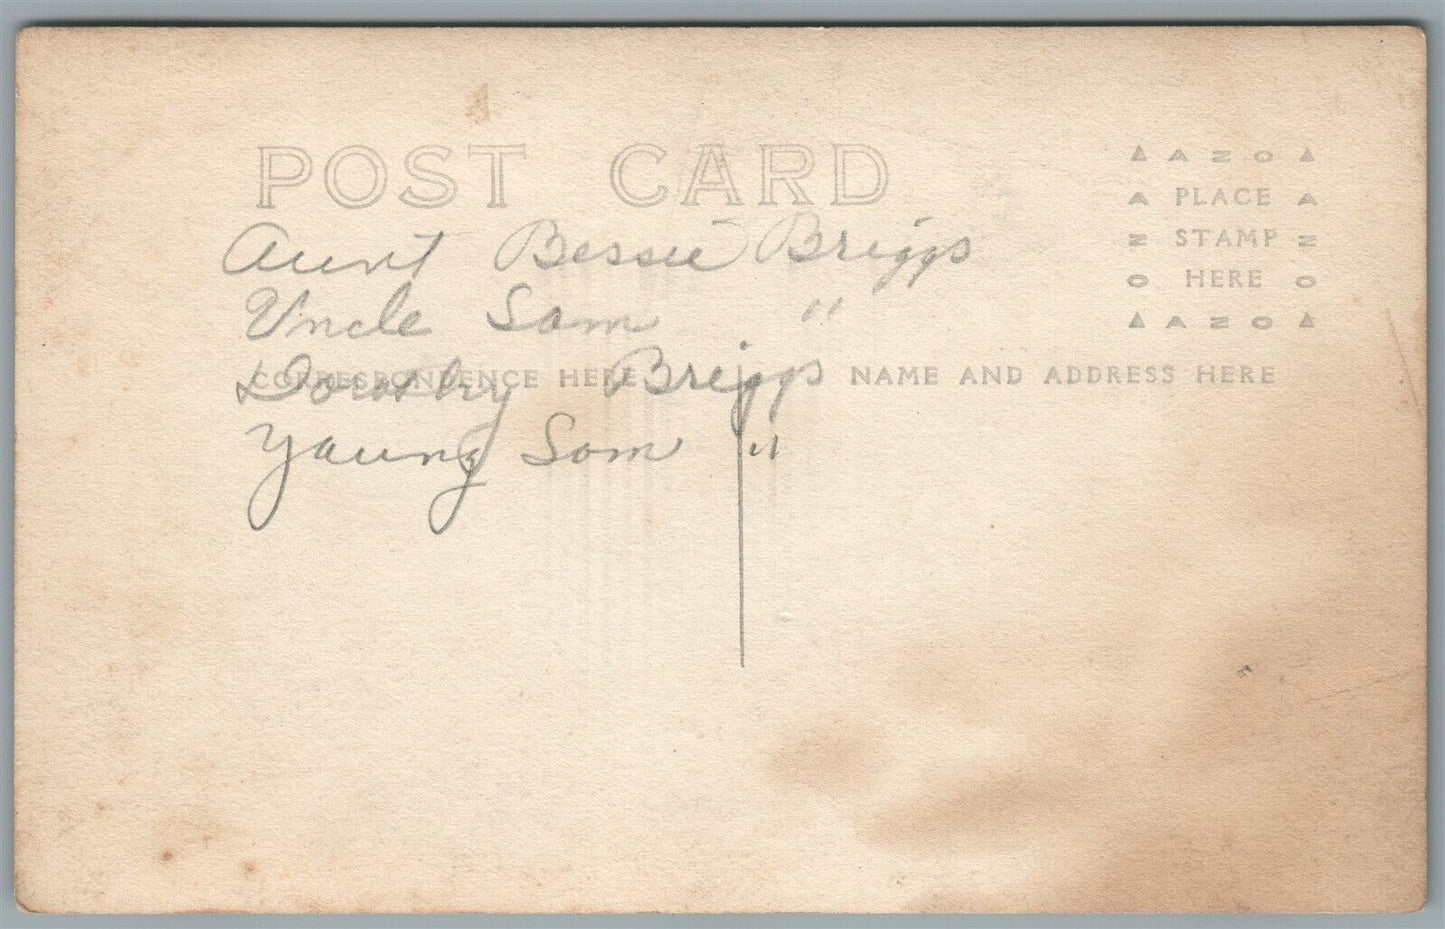 POST CARD
▲ A Z O ▲
A PLACE A
Z STAMP Z
O HERE O
▲ A Z O ▲
Aunt Bessie Briggs
Uncle Sam "
CORRESPONDENCE HERE
NAME AND ADDRESS HERE
Dorothy Briggs
Young Sam "